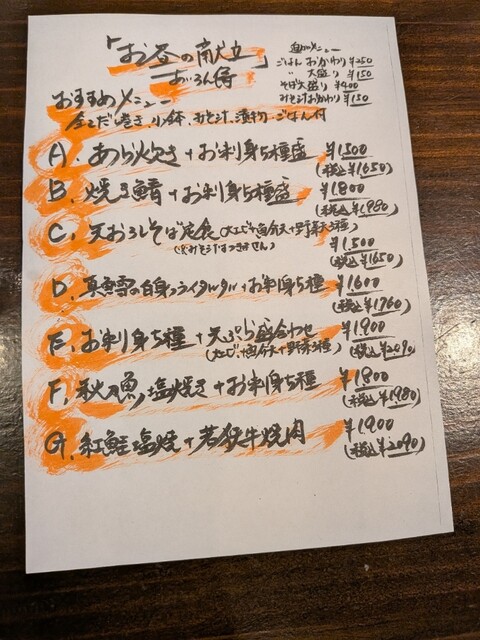 「お昼の献立」
あいろん侍
追加メニュー
ごはん おかわり ¥250
〃 大盛り ¥150
そば大盛り ¥400
みそ汁おかわり ¥150
おすすめメニュー
全てだし巻き、小鉢、みそ汁、漬物、ごはん付
A. あら炊き + お刺身5種盛 ¥1500
(税込¥1650)
B. 焼き鯖 + お刺身5種盛 ¥1800
(税込¥1980)
C. 天おろしそば定食(大エビ+白身魚天+野菜天3種)
(※みそ汁はつきません) ¥1500
(税込¥1650)
D. 真鱈の白身フライタルタル + お刺身5種 ¥1600
(税込¥1760)
E. お刺身5種 + 天ぷら盛合わせ ¥1900
(大エビ+白身魚天+野菜3種) (税込¥2090)
F. 秋刀魚塩焼き + お刺身5種 ¥1800
(税込¥1980)
G. 紅鮭塩焼 + 若狭牛焼肉 ¥1900
(税込¥2090)